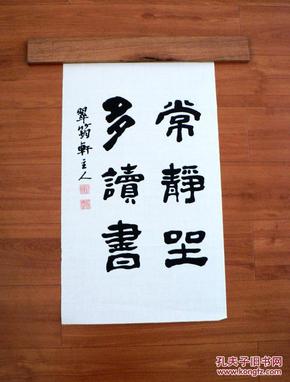 常靜坐
多讀書
翠筠軒主人
孔夫子旧书网
www.kongfz.com